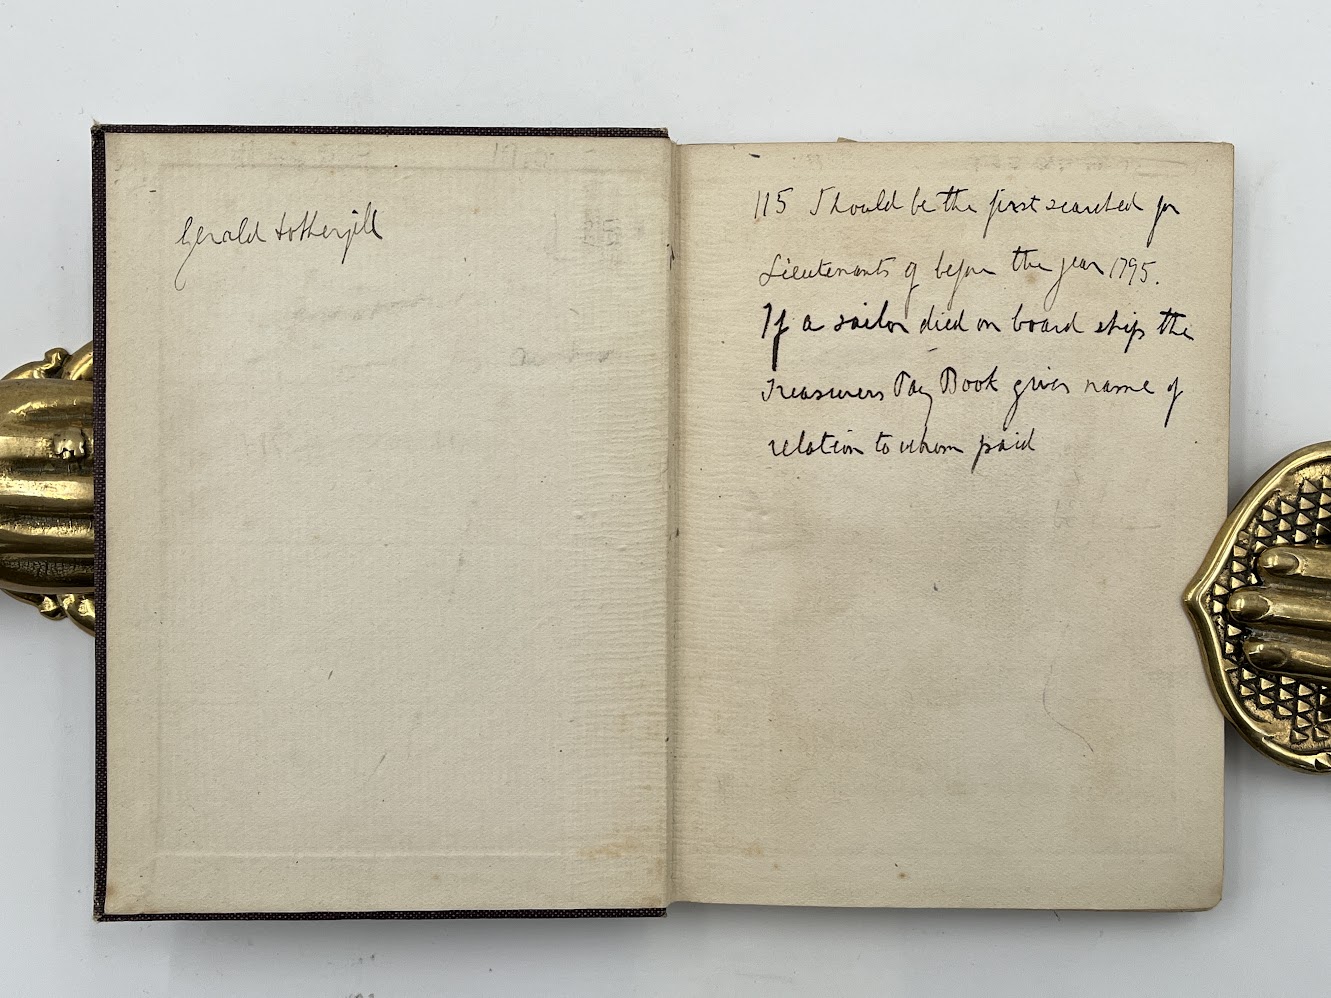 Gerald Fothergill
115 Should be the first searched for
Lieutenants of before the year 1795.
If a sailor died on board ship the
Treasurers Pay Book gives name of
relation to whom paid